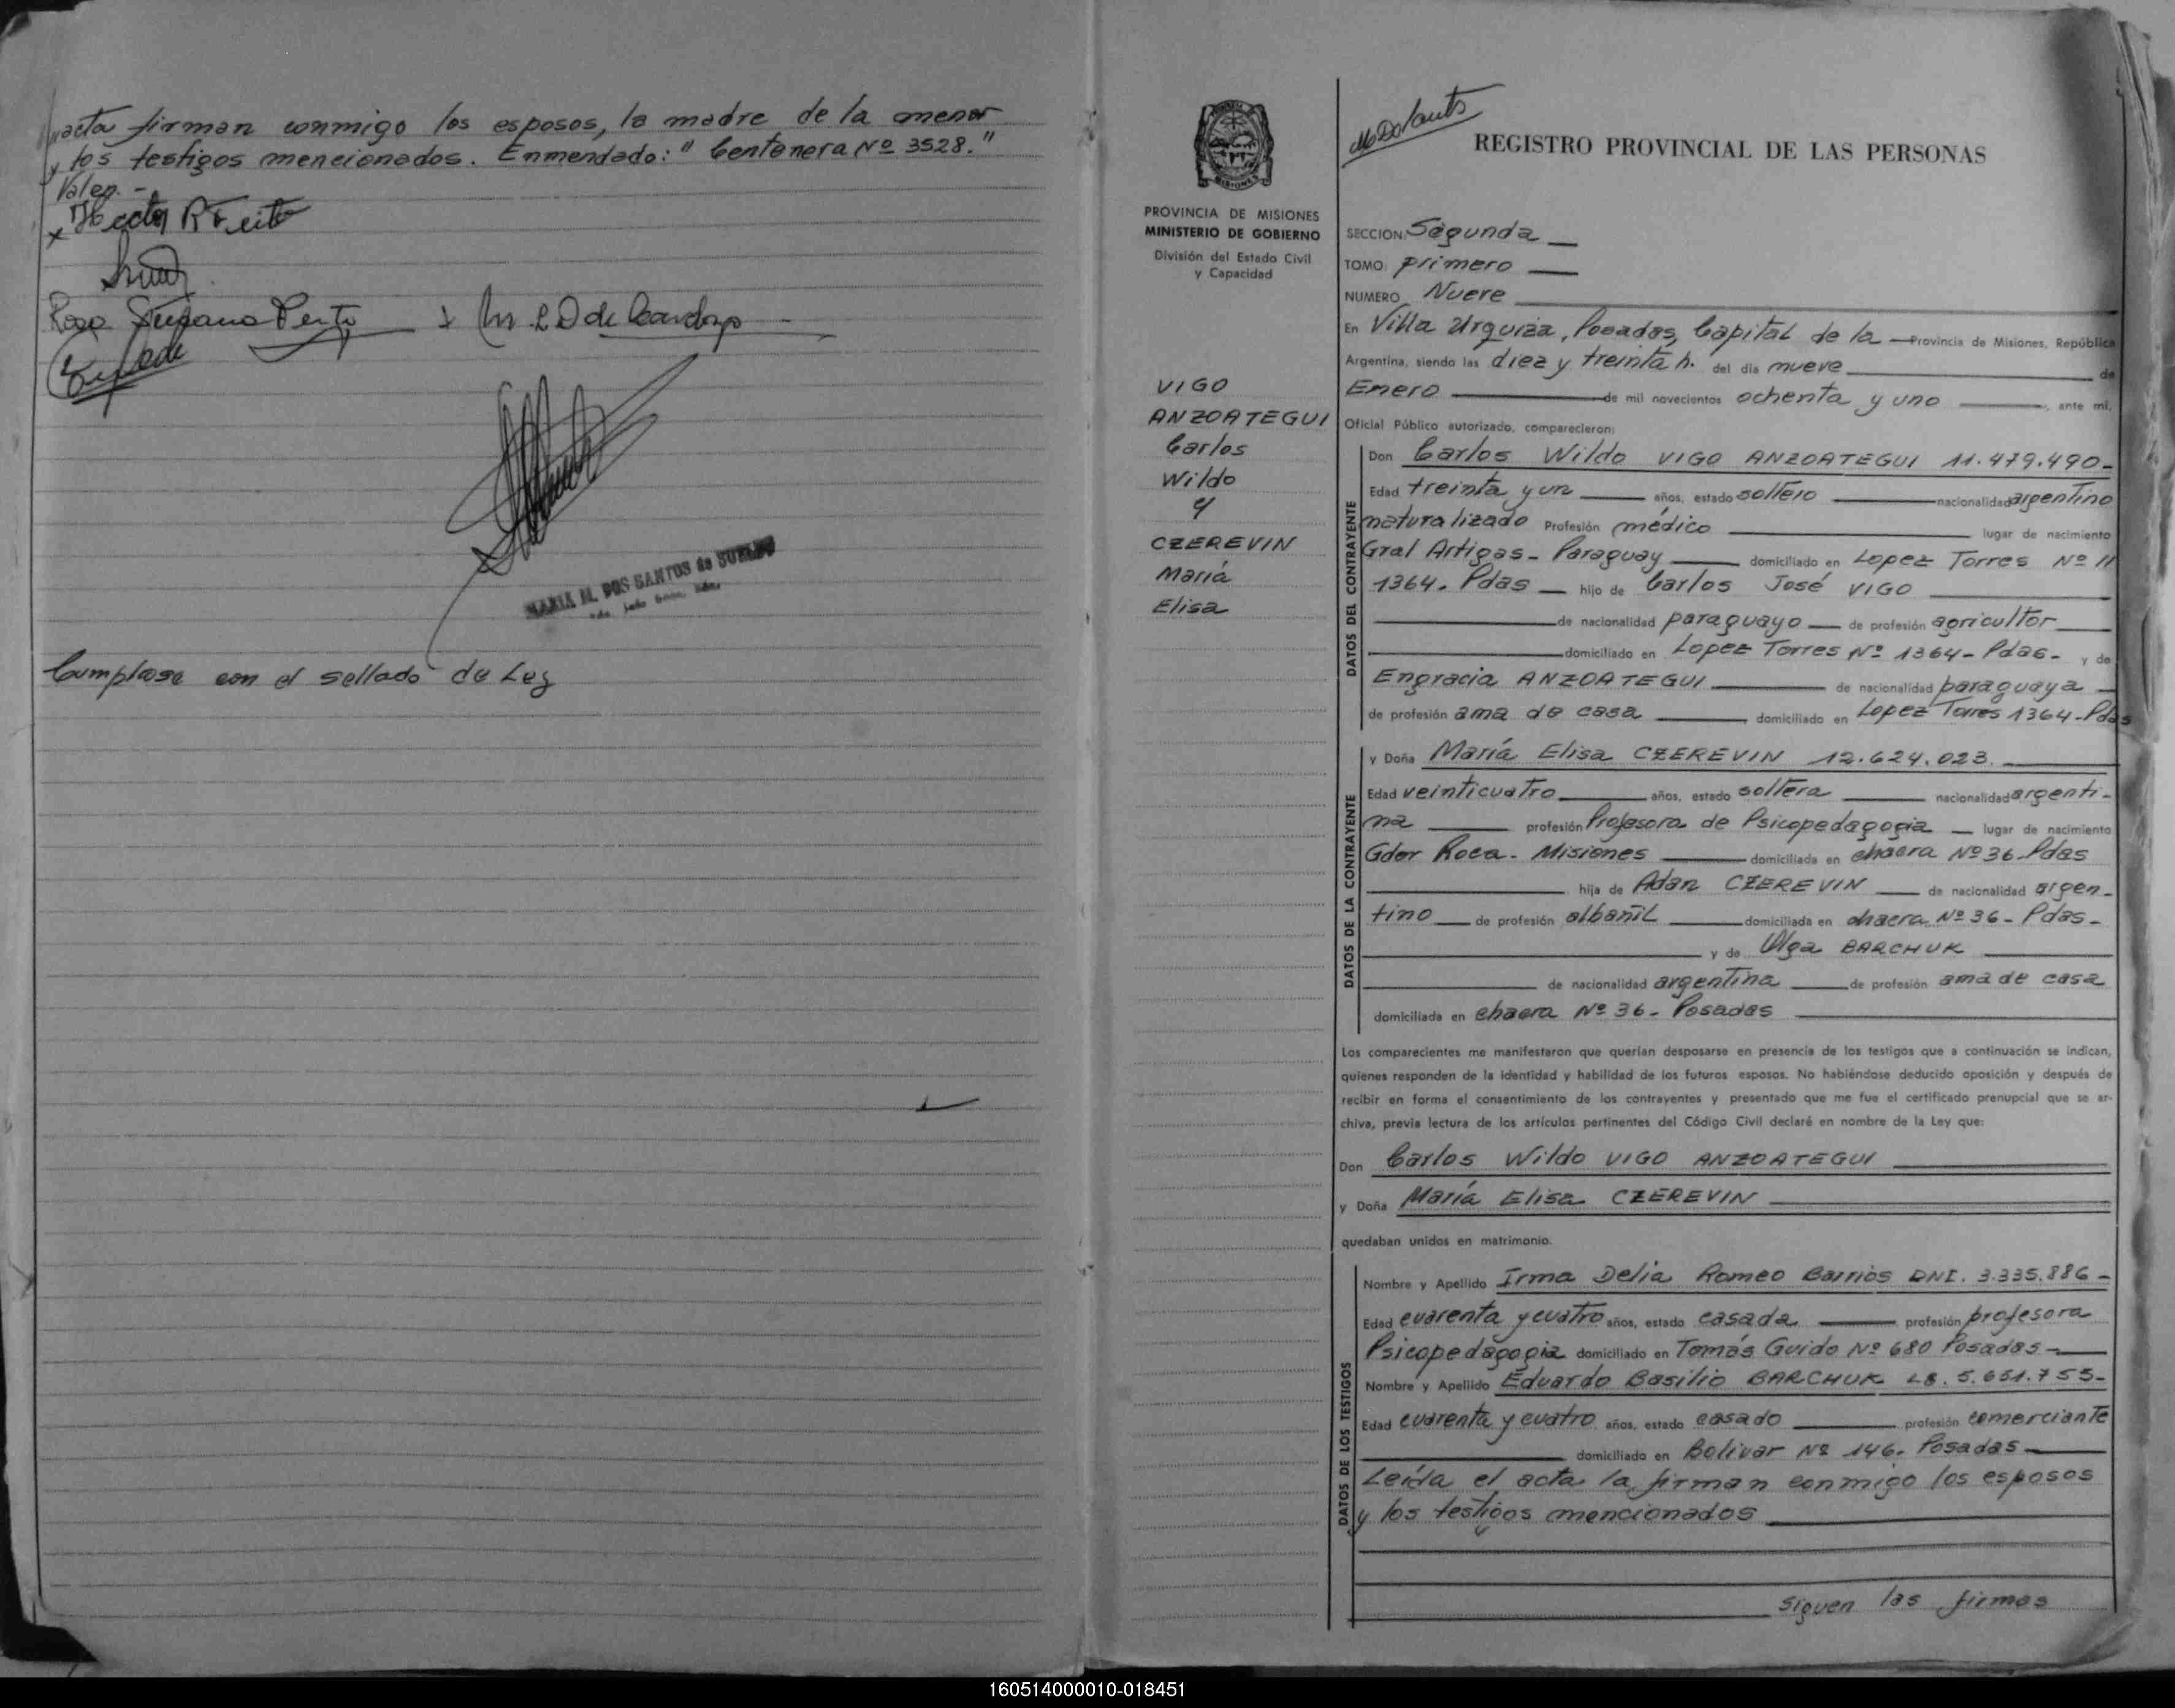 acta firman conmigo los esposos, la madre de la menor
y los testigos mencionados. Enmendado: "Centenera Nº 3528."
Valen.-
x Hector R
Rosa
x
MARIA M. DOS SANTOS de
Cumplase con el sellado de Ley
PROVINCIA DE MISIONES
MINISTERIO DE GOBIERNO
División del Estado Civil
y Capacidad
VIGO
ANZOATEGUI
Carlos
Wildo
y
CZEREVIN
María
Elisa
REGISTRO PROVINCIAL DE LAS PERSONAS
SECCION: Segunda
TOMO: primero
NUMERO Nueve
En Villa Urquiza, Posadas, Capital de la Provincia de Misiones, República
Argentina, siendo las diez y treinta h. del día nueve de
Enero de mil novecientos ochenta y uno, ante mí,
Oficial Público autorizado, comparecieron:
DATOS DEL CONTRAYENTE
Don Carlos Wildo VIGO ANZOATEGUI 11.479.490-
Edad treinta y un años, estado soltero nacionalidad argentino
naturalizado Profesión médico lugar de nacimiento
Gral Artigas - Paraguay domiciliado en Lopez Torres Nº
1364. Pdas hijo de Carlos José VIGO
de nacionalidad paraguayo de profesión agricultor
domiciliado en Lopez Torres Nº 1364 - Pdas - y de
Engracia ANZOATEGUI de nacionalidad paraguaya
de profesión ama de casa domiciliado en Lopez Torres 1364-Pdas
DATOS DE LA CONTRAYENTE
y Doña María Elisa CZEREVIN 12.624.023.
Edad veinticuatro años, estado soltera nacionalidad argenti-
na profesión Profesora de Psicopedagogia lugar de nacimiento
Gdor Roca - Misiones domiciliada en chacra Nº 36-Pdas
hija de Adan CZEREVIN de nacionalidad argen-
tino de profesión albañil domiciliada en chacra Nº 36 - Pdas -
y de Olga BARCHUK
de nacionalidad argentina de profesión ama de casa
domiciliada en chacra Nº 36 - Posadas
Los comparecientes me manifestaron que querían desposarse en presencia de los testigos que a continuación se indican,
quienes responden de la identidad y habilidad de los futuros esposos. No habiéndose deducido oposición y después de
recibir en forma el consentimiento de los contrayentes y presentado que me fue el certificado prenupcial que se ar-
chiva, previa lectura de los artículos pertinentes del Código Civil declaré en nombre de la Ley que:
Don Carlos Wildo VIGO ANZOATEGUI
y Doña María Elisa CZEREVIN
quedaban unidos en matrimonio.
DATOS DE LOS TESTIGOS
Nombre y Apellido Irma Delia Romeo Barrios DNI. 3.335.886-
Edad cuarenta y cuatro años, estado casada profesión profesora
Psicopedagogia domiciliado en Tomás Guido Nº 680 Posadas-
Nombre y Apellido Eduardo Basilio BARCHUK LE. 5.651.755-
Edad cuarenta y cuatro años, estado casado profesión comerciante
domiciliado en Bolivar Nº 146. Posadas
Leída el acta la firman conmigo los esposos
y los testigos mencionados
Siguen las firmas
160514000010-018451